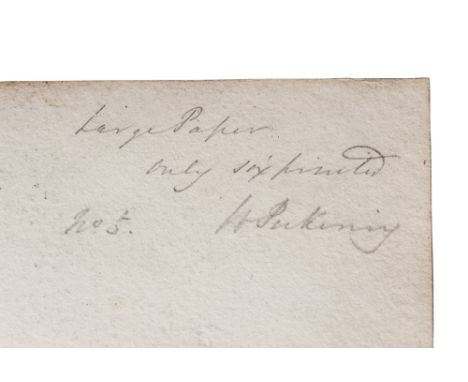 Large Paper
only six printed
No 5. W Pickering